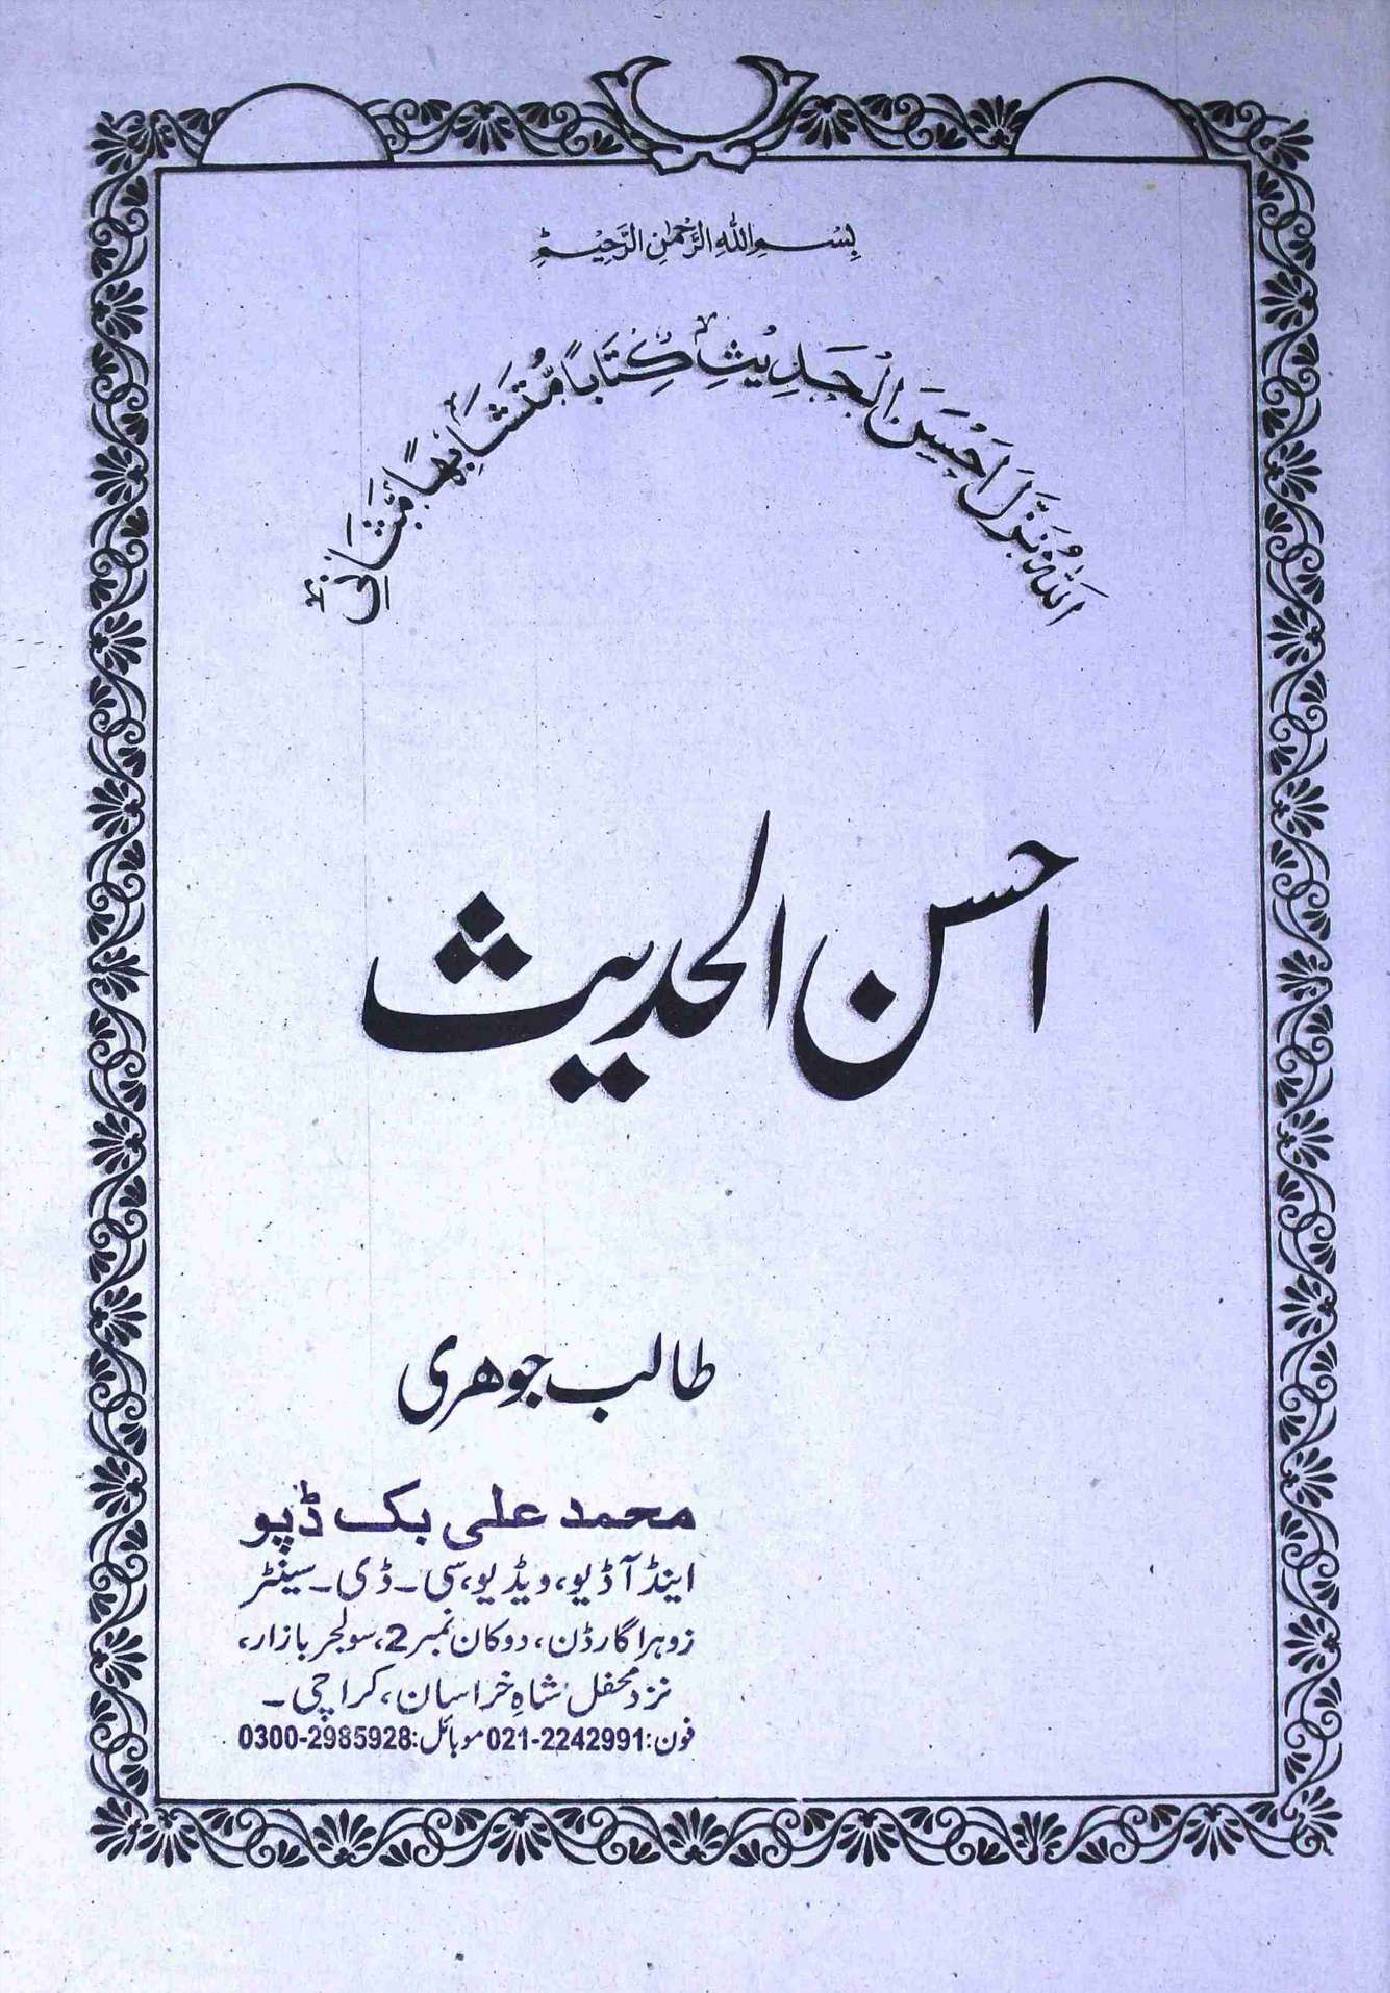 بِسْمِ اللهِ الرَّحْمٰنِ الرَّحِيْمِ
اَللّٰهُ نَزَّلَ اَحْسَنَ الْحَدِيْثِ كِتَابًا مُّتَشَابِهًا مَّثَانِيَ
احسن الحدیث
طالب جوھری
محمد علی بک ڈپو
اینڈ آڈیو، ویڈیو، سی۔ڈی۔سینٹر
زوہرا گارڈن، دوکان نمبر 2، سولجر بازار،
نزد محفل شاہِ خراسان، کراچی۔
فون: 021-2242991 موبائل: 0300-2985928